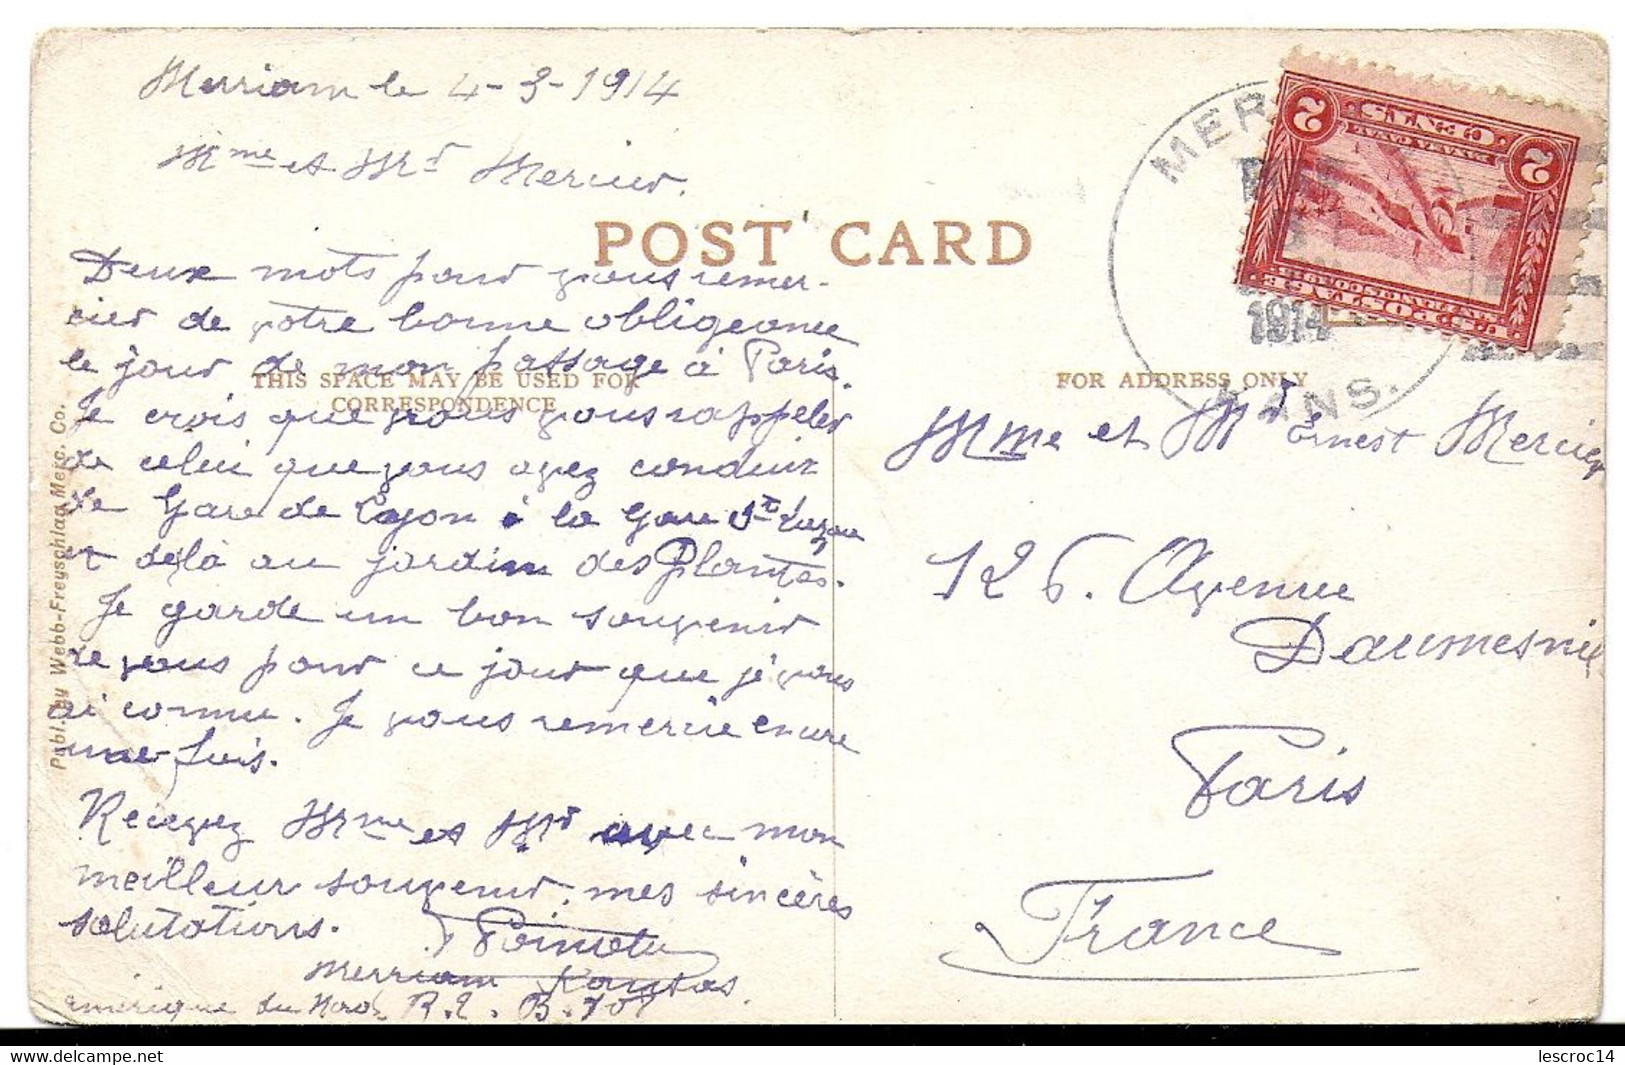 Merriam le 4-3-1914
Mme et Mr Mercier.
POST CARD
Deux mots pour vous remer-
cier de votre bonne obligeance
le jour de mon passage à Paris.
THIS SPACE MAY BE USED FOR
CORRESPONDENCE
Je crois que vous vous rappeler
de celui que vous avez conduit
de Gare de Lyon à la Gare St Lazare
et delà au jardin des Plantes.
Je garde un bon souvenir
de vous pour ce jour que je vous
ai connu. Je vous remercie encore
une fois.
Recevez Mme et Mr avec mon
meilleur souvenir, mes sincères
salutations.
Merriam Kansas.
amérique du Nord. R.
Publ. by Webb-Freyschlag Merc. Co.
MER
1914
KANS.
2 CENTS 2
PANAMA CANAL
SAN FRANCISCO 1915
U.S. POSTAGE
FOR ADDRESS ONLY
Mme et Mr Ernest Mercier
126. Avenue
Daumesnil
Paris
France
lescroc14